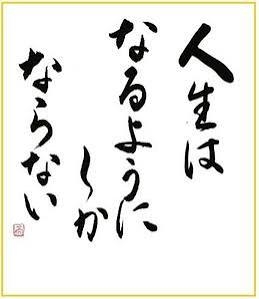 人生は
なるように
しか
ならない